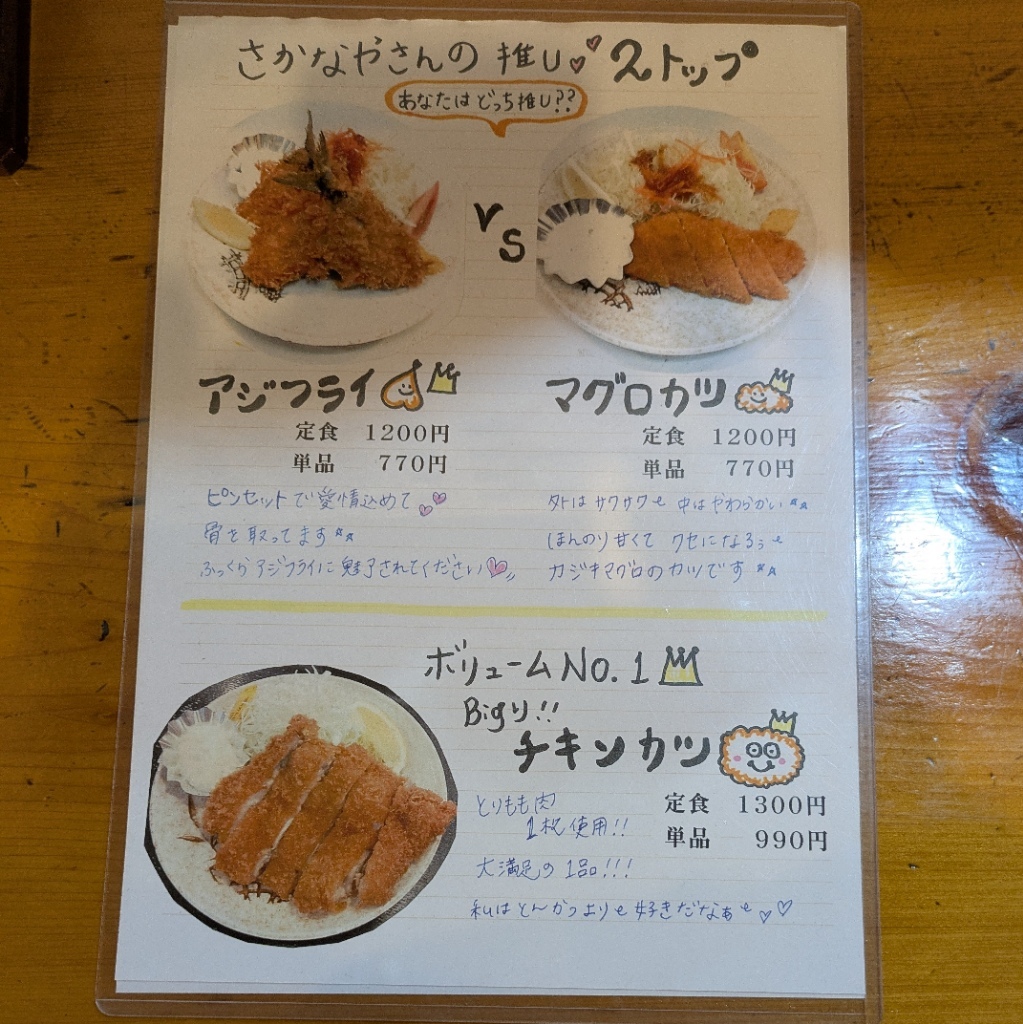 さかなやさんの 推し 2トップ
あなたは どっち推し??
VS
アジフライ
定食 1200円
単品 770円
ピンセットで 愛情込めて
骨を取ってます
ふっくらアジフライに 魅了されてください
マグロカツ
定食 1200円
単品 770円
外はサクサク〜 中はやわらかい
ほんのり甘くて クセになるぅ〜
カジキマグロのカツです
ボリュームNo.1
Bigり!!
チキンカツ
定食 1300円
単品 990円
とりもも肉
1枚使用!!
大満足の1品!!!
私はとんかつより〜 好きだなぁ〜